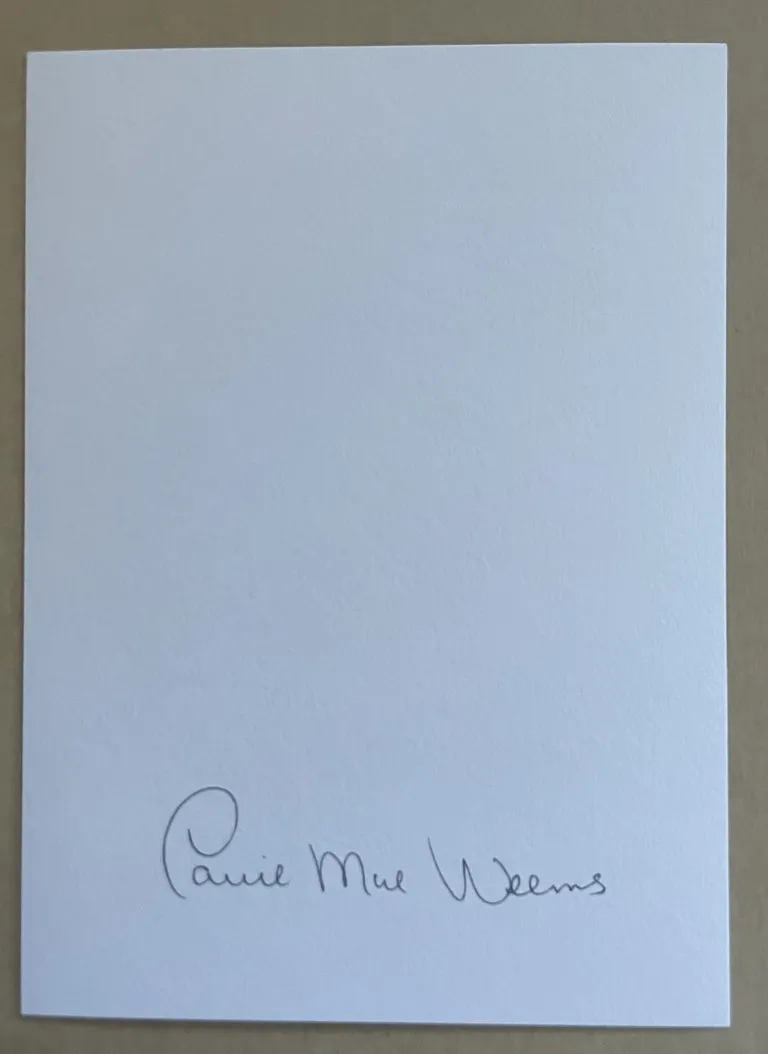 Carrie Mae Weems